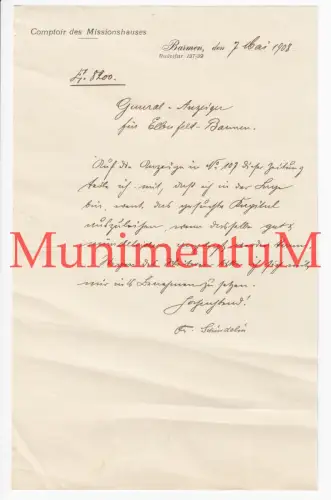 Comptoir des Missionshauses
Barmen, den 7 Mai 1908
Rudolfstr. 137/139
8200.
General-Anzeiger
für Elberfeld-Barmen.
Auf die Anzeige in No 107 dieser Zeitung
teile ich mit, daß ich in der Lage
bin, das gesuchte Kapital
auszuleihen, wenn dasselbe gut
MunimentuM
mir ins Benehmen zu setzen.
Hochachtend!
Fr.